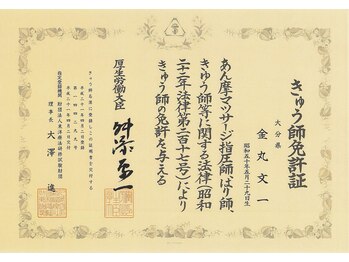 きゅう師免許証
大分県
金丸文一
昭和五十年五月二十九日生
あん摩マツサージ指圧師、はり師、
きゆう師等に関する法律（昭和
二十二年法律第二百十七号）により
きゆう師の免許を与える
厚生労働大臣
舛添要一
きゅう師名簿に登録しこの証明書を交付する
指定登録機関 財団法人東洋療法研修試験財団
理事長 大澤進